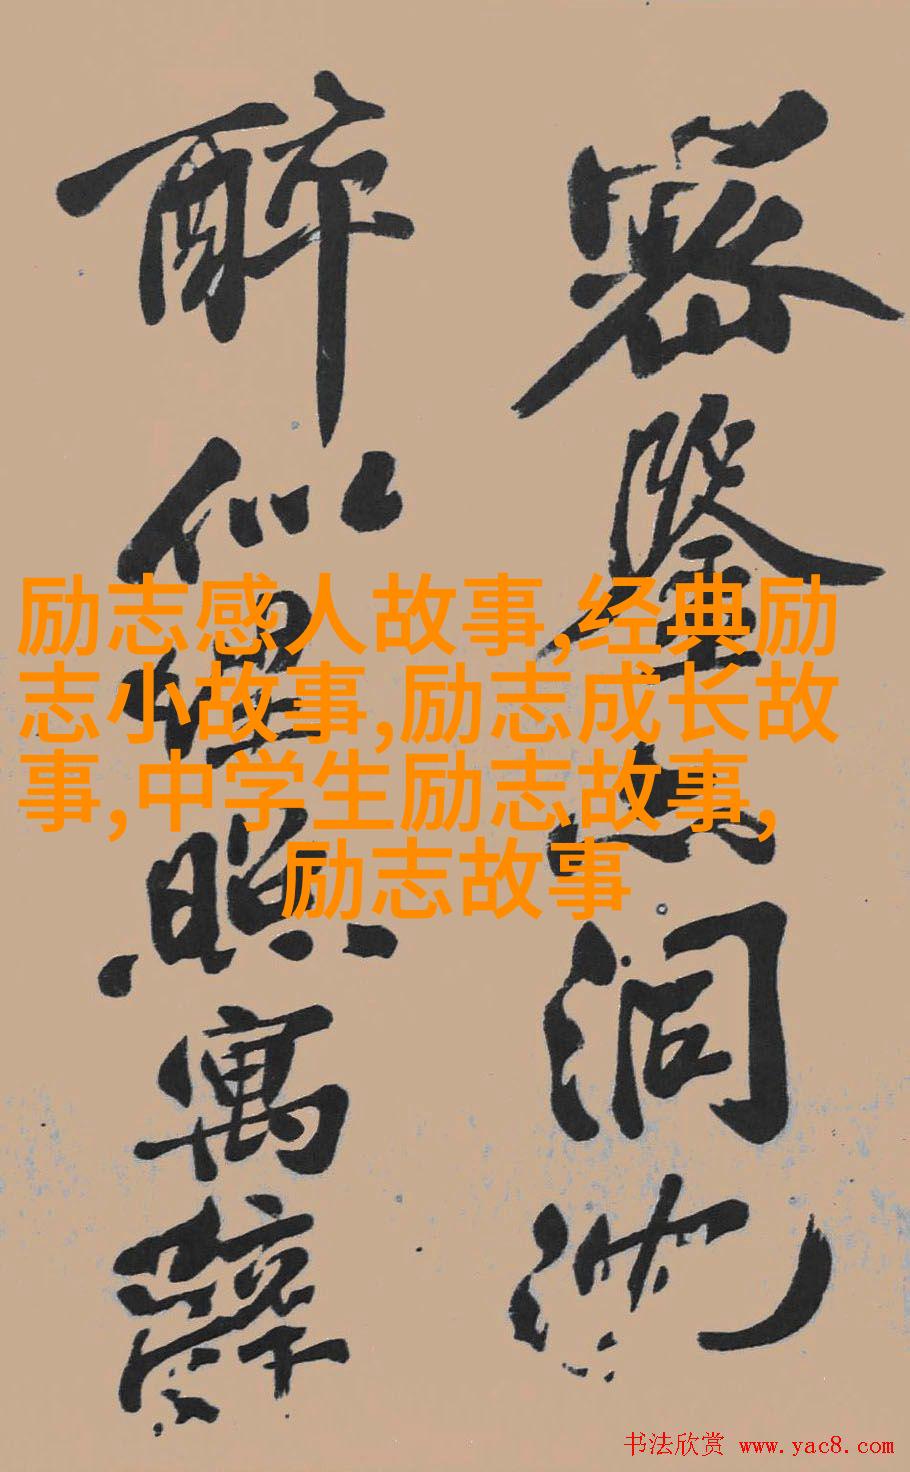 密鑒亦洞沈
醉似埋照寓辭
励志感人故事,经典励
志小故事,励志成长故
事,中学生励志故事,
励志故事
书法欣赏 www.yac8.com